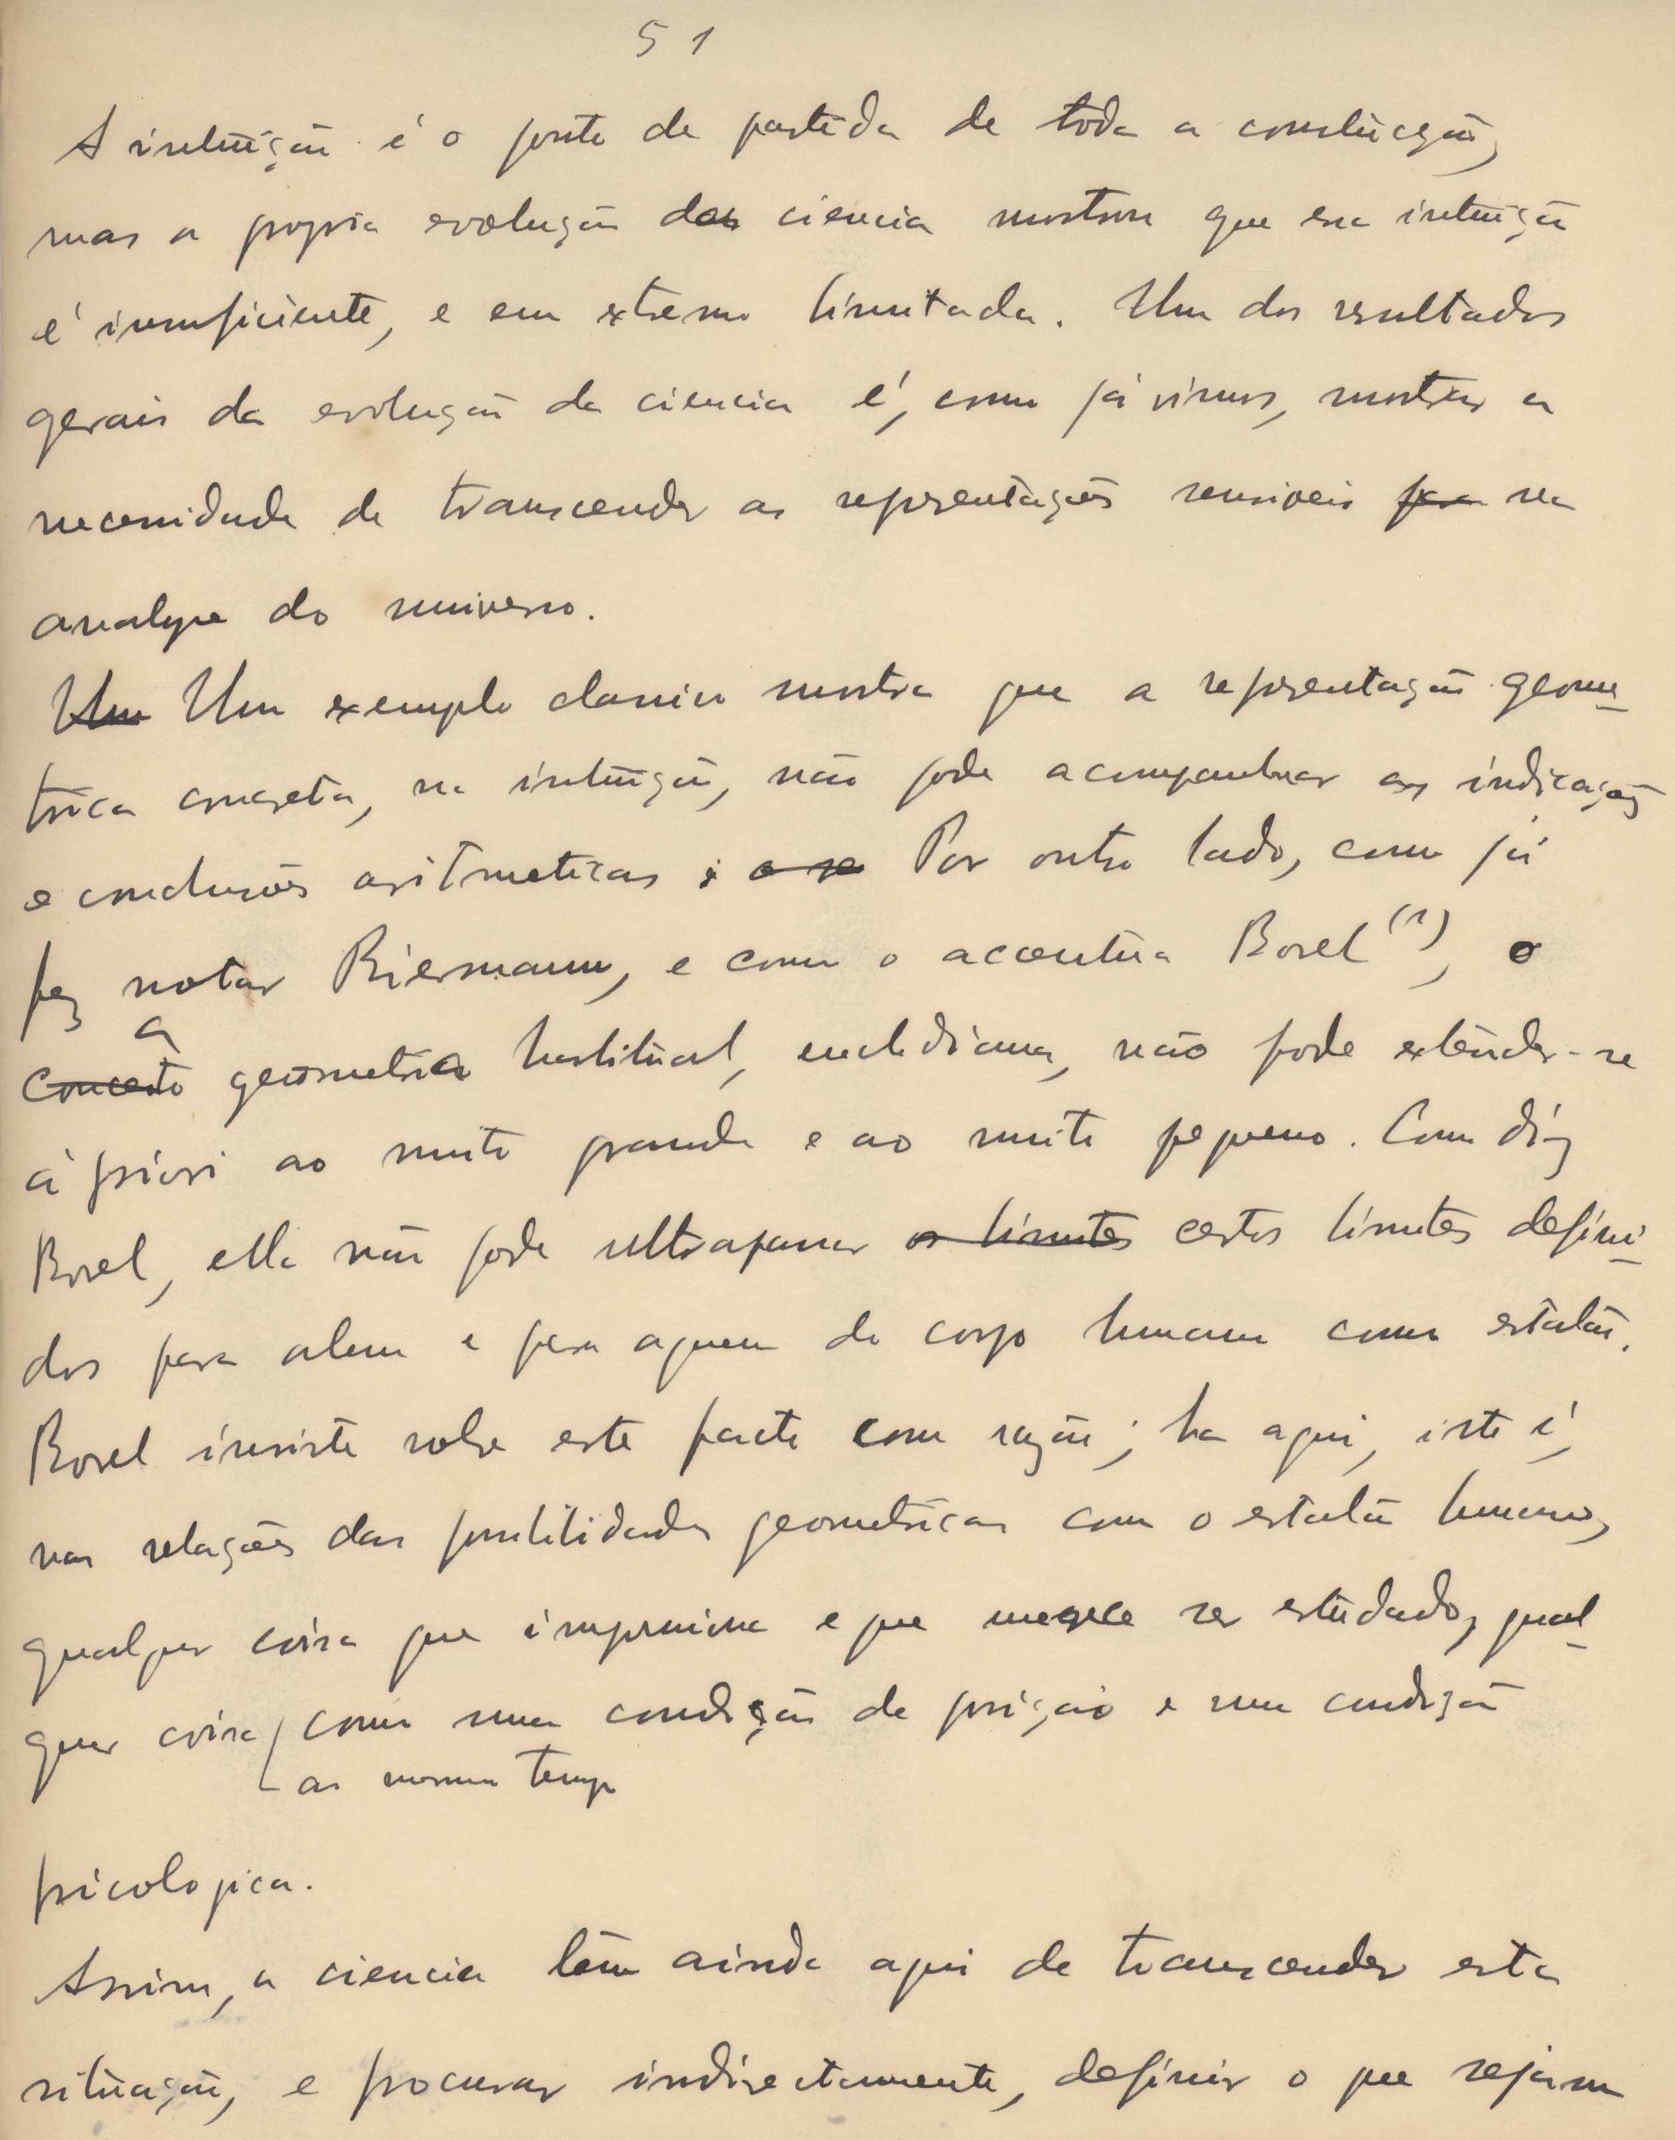 51
A intuição é o ponto de partida de toda a construcção,
mas a propria evolução da ciencia mostra que essa intuição
é insuficiente, e em extremo limitada. Um dos resultados
gerais da evolução da ciencia é, como já vimos, mostrar a
necessidade de transcender as representações sensiveis para na
analyse do universo.
Um Um exemplo classico mostra que a representação geome-
trica concreta, na intuição, não pode acompanhar as indicações
e conclusões aritmeticas; e se Por outro lado, como já
fez notar Riermann, e como o accentúa Borel (1), o
a
conceito geometria habitual, euclidiana, não pode extender-se
à priori ao muito grande e ao muito pequeno. Como diz
Borel, ella não pode ultrapassar os limites certos limites defini-
dos para alem e para aquem do corpo humano como estalão.
Borel insiste sobre este facto com razão; ha aqui, isto é,
nas relações das possibilidades geometricas com o estalão humano,
qualquer coisa que impressiona e que merece ser estudado, qual-
quer coisa como uma condição de posição e uma condição
ao mesmo tempo
psicologica.
Assim, a ciencia têm ainda aqui de transcender esta
situação, e procurar indirectamente, definir o que sejam